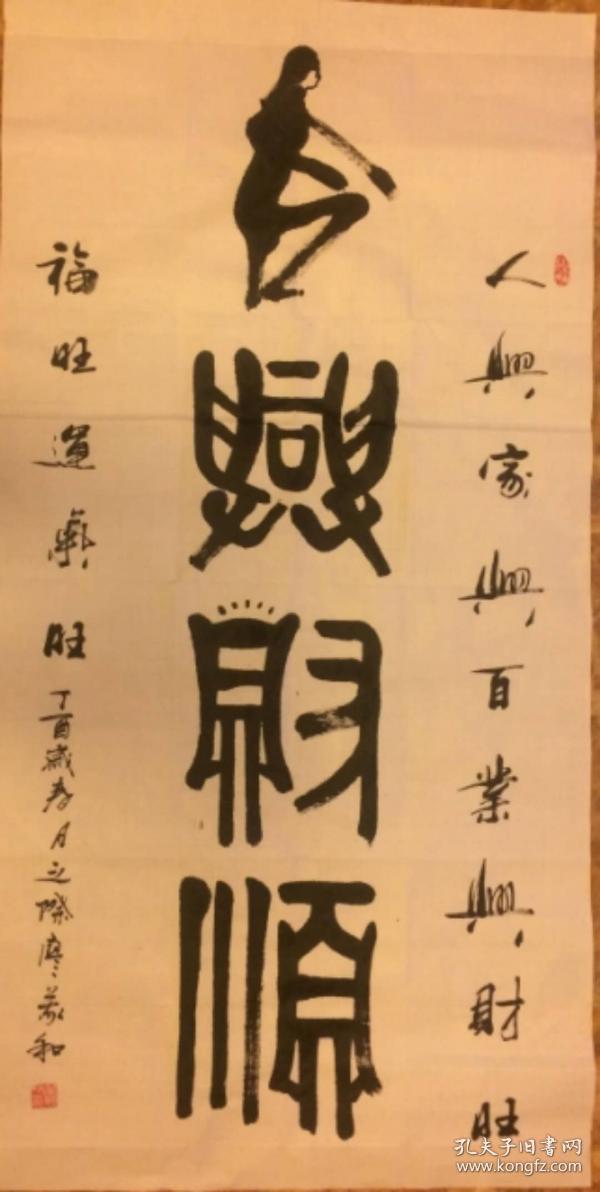 人興家興百業興財旺
興財順
福旺運旺
丁酉歲春月之際廖和
孔夫子旧书网
www.kongfz.com